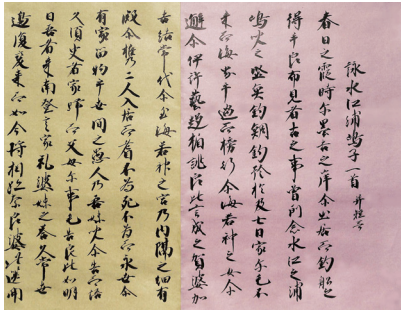 詠水江浦嶋子一首 并短哥
春日之霞時尓墨吉之岸尓出居而釣船之
得乎良布見者古之事曽所念水江之浦
嶋兒之堅魚釣鯛釣矜及七日家尓毛不
来而海界乎過而榜行尓海若神之女尓
邂尓伊許藝趍相誂良比言成之賀婆加
吉結常代尓至海若神之宮乃内隔之細有
殿尓携二人入居而耆不為死不為而永世尓
有家留物乎世間之愚人乃吾妹兒尓告而語
久須臾者家歸而父母尓事毛告良比如明
日吾者来南登言家礼婆妹之答久常世
邊復變来而如今将相跡奈良婆此篋開